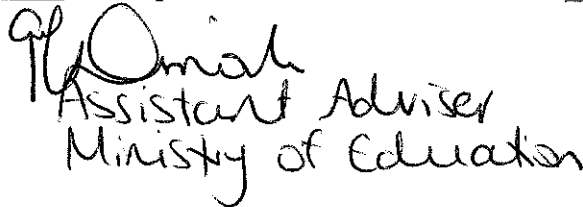 Assistant Adviser
Ministry of Education